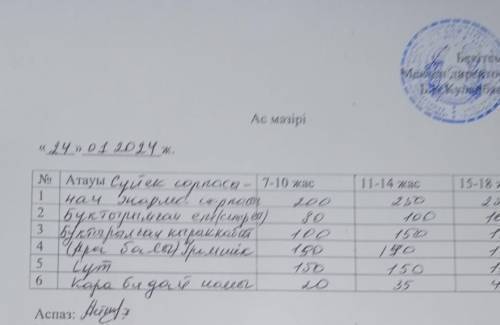 Бекітем
Мектеп директор
Ас мәзірі
«24» 01 2024 ж.
№ Атауы Сүйек сорпасы- 7-10 жас 11-14 жас 15-18 ж
1 нан жарма сорпасы 200 250 25
2 Бұқтырылған ет 80 100 10
3 Бұқтырылған қырыққабат 100 150 1
4 150 190 1
5 Сүт 150 150 1
6 Қара бидай наны 20 35 4
Аспаз: